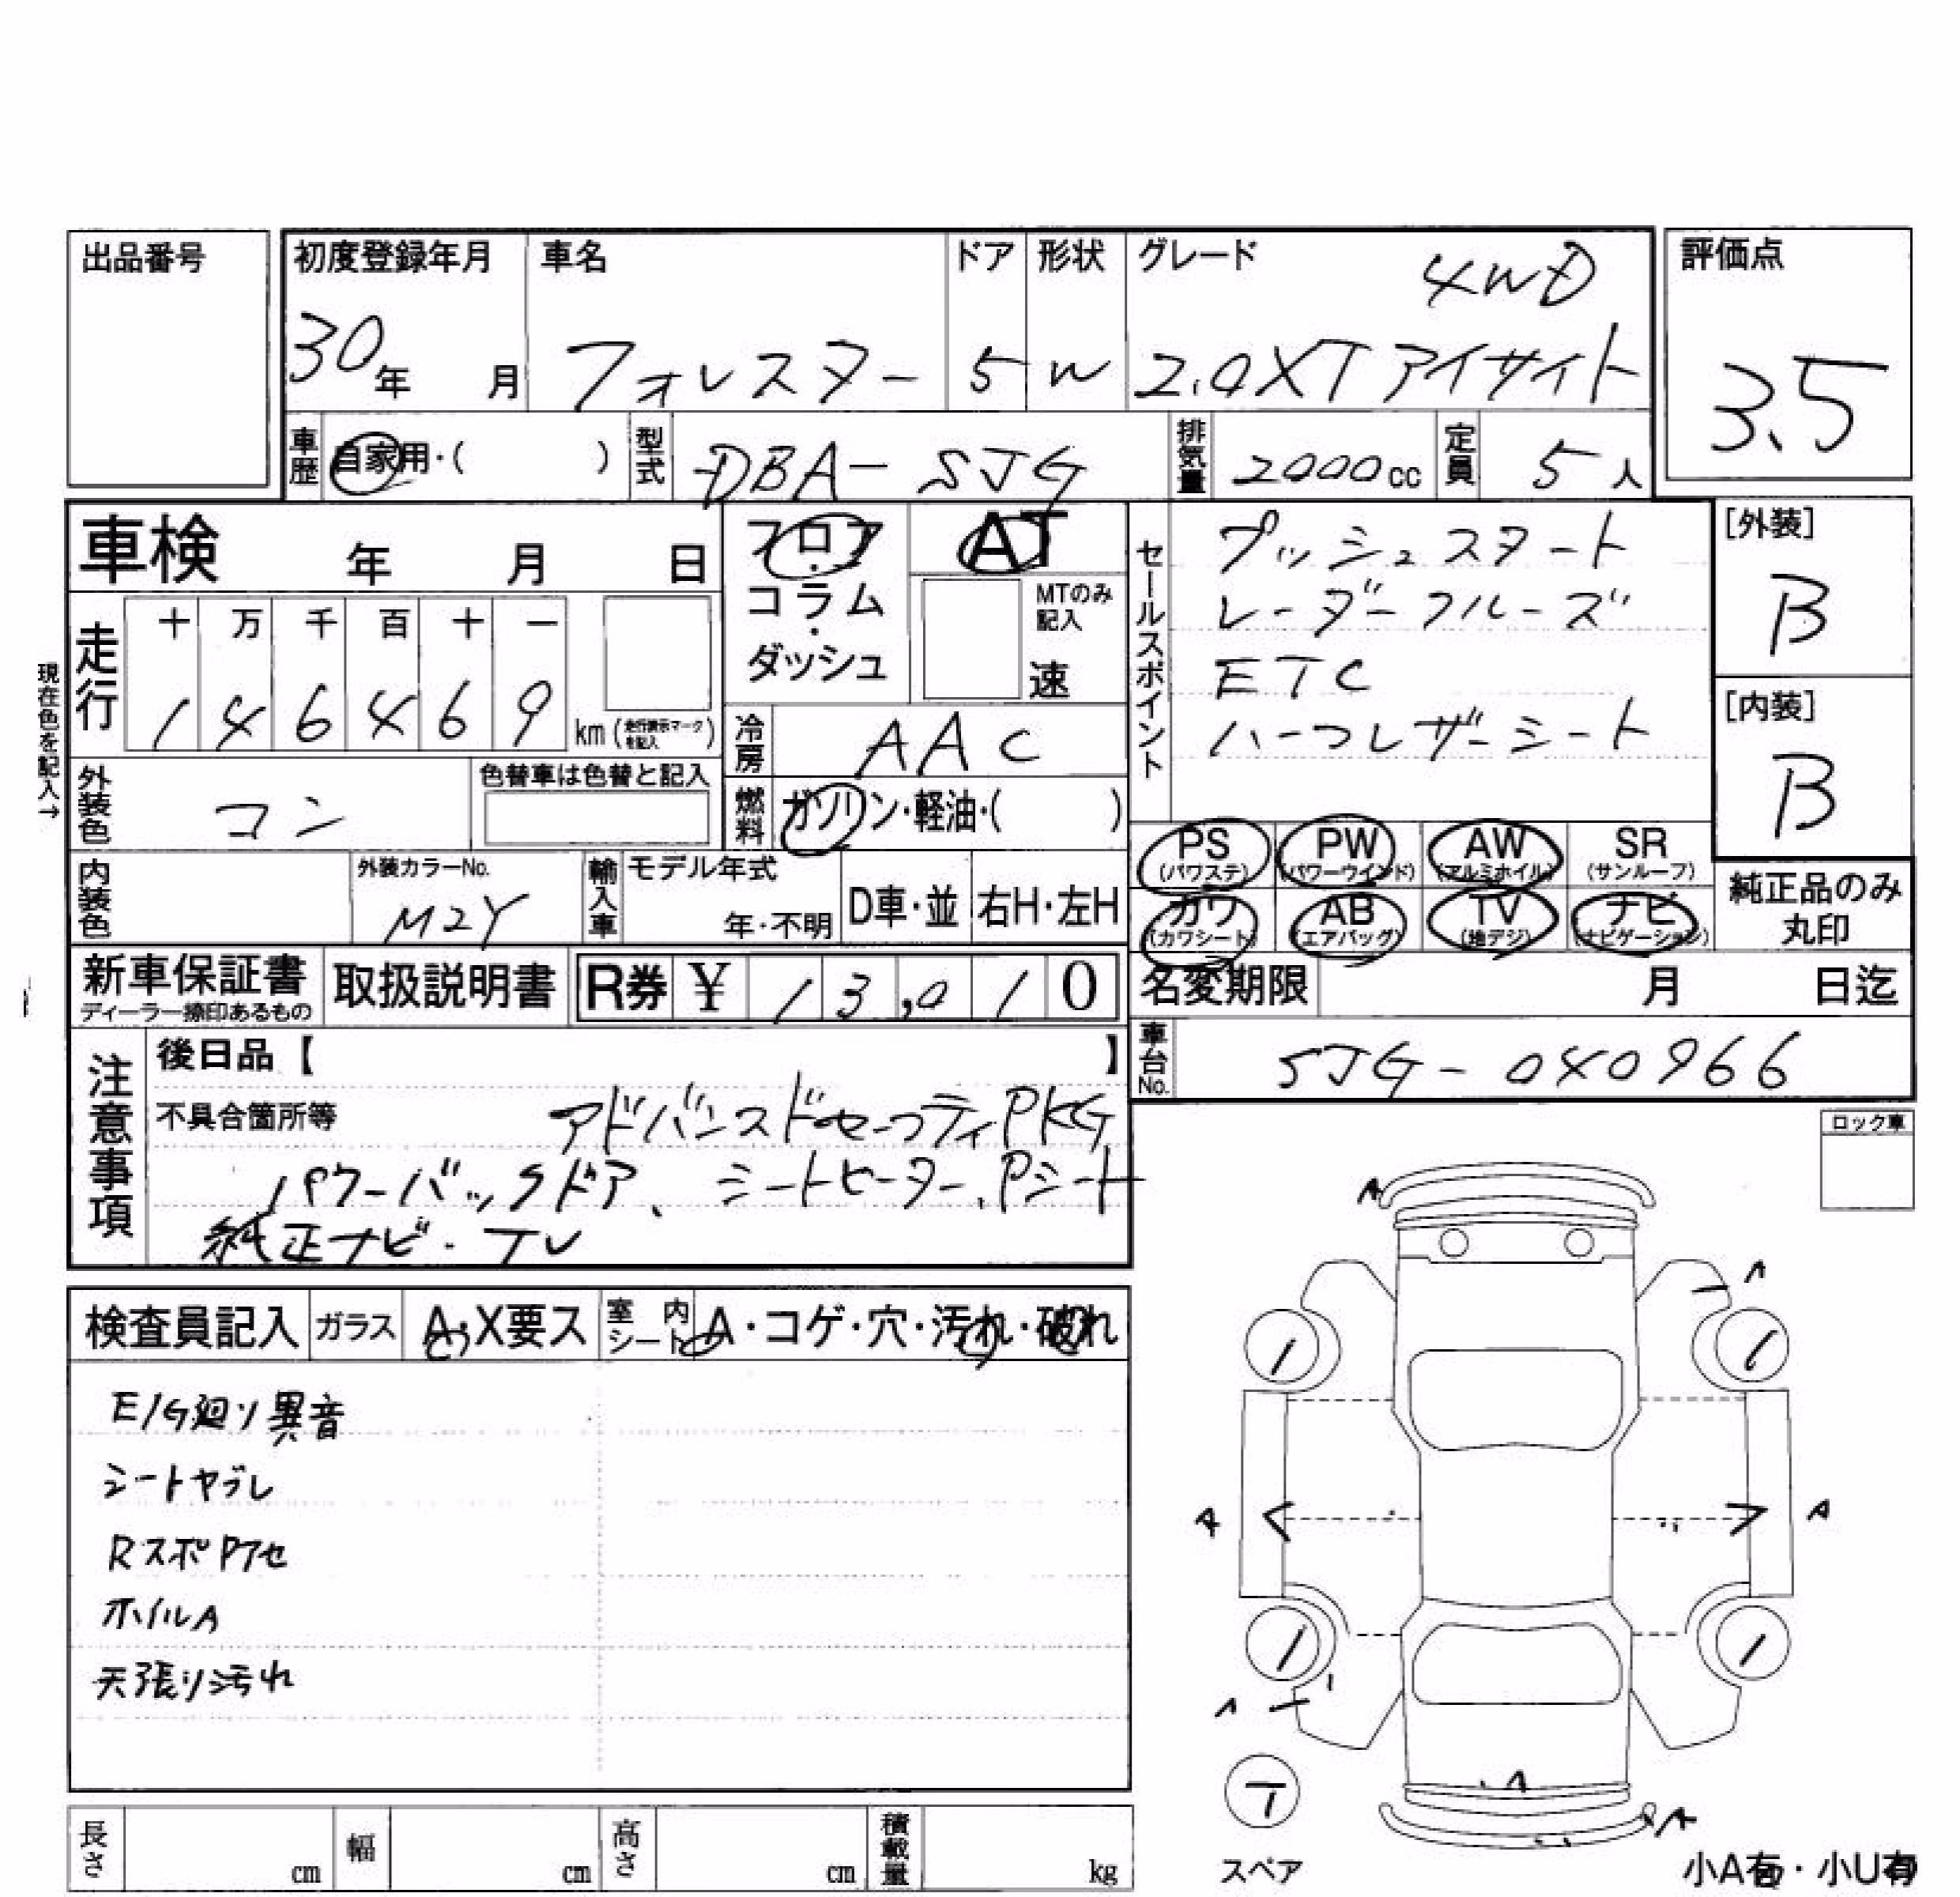 出品番号
初度登録年月 車名 ドア 形状 グレード 評価点
4WD
30年 月 フォレスター 5 W 2.0XTアイサイト 3.5
車歴 自家用・( ) 型式 DBA-SJG 排気量 2000cc 定員 5人
車検 年 月 日
フロア・コラム・ダッシュ
AT
MTのみ記入
速
走行 十 万 千 百 十 一
1 4 6 4 6 9 km (走行表示マークを記入)
現在色を記入→
冷房 AAC
燃料 ガソリン・軽油・( )
外装色 コン
色替車は色替と記入
内装色
外装カラーNo.
M2Y
輸入車 モデル年式
年・不明 D車・並 右H・左H
セールスポイント
プッシュスタート
レーダークルーズ
ETC
ハーフレザーシート
[外装]
B
[内装]
B
PS (パワステ) PW (パワーウインド) AW (アルミホイル) SR (サンルーフ)
カワ (カワシート) AB (エアバッグ) TV (地デジ) ナビ (ナビゲーション)
純正品のみ丸印
新車保証書
ディーラー捺印あるもの
取扱説明書 R券 ¥ 13,010
名変期限 月 日迄
車台No. SJG-040966
注意事項
後日品【 】
不具合箇所等 アドバンスドセーフティPKG
パワーバックドア、シートヒーター、Pシート
純正ナビ・TV
ロック車
検査員記入 ガラス A・X要ス 室内シート A・コゲ・穴・汚れ・破れ
E/G廻り異音
シートヤブレ
RスポPアセ
ホイルA
天張り汚れ
A
A
A
A
A
A
A
スペア
小A有・小U有
長さ cm 幅 cm 高さ cm 積載量 kg